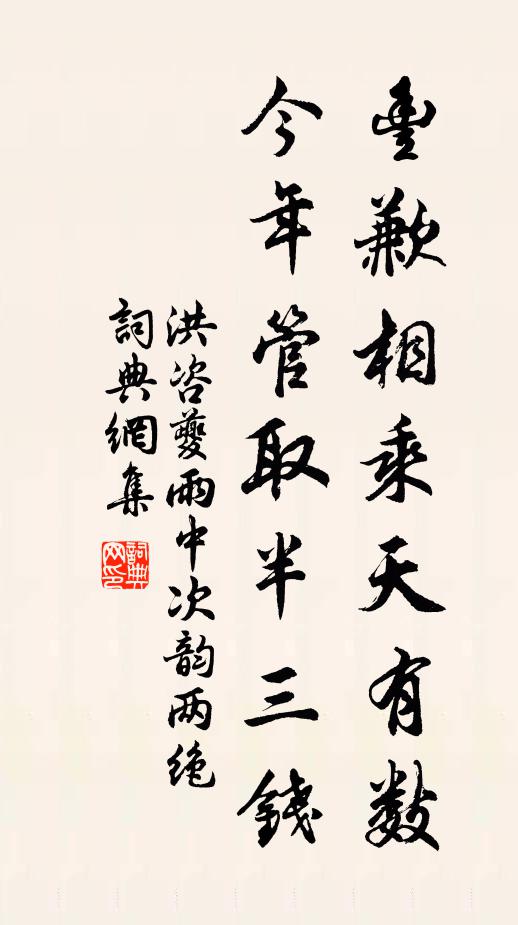 豐歉相乘天有数
今年管取半三錢
洪咨夔雨中次韵两绝
詞典網集
詞典网印